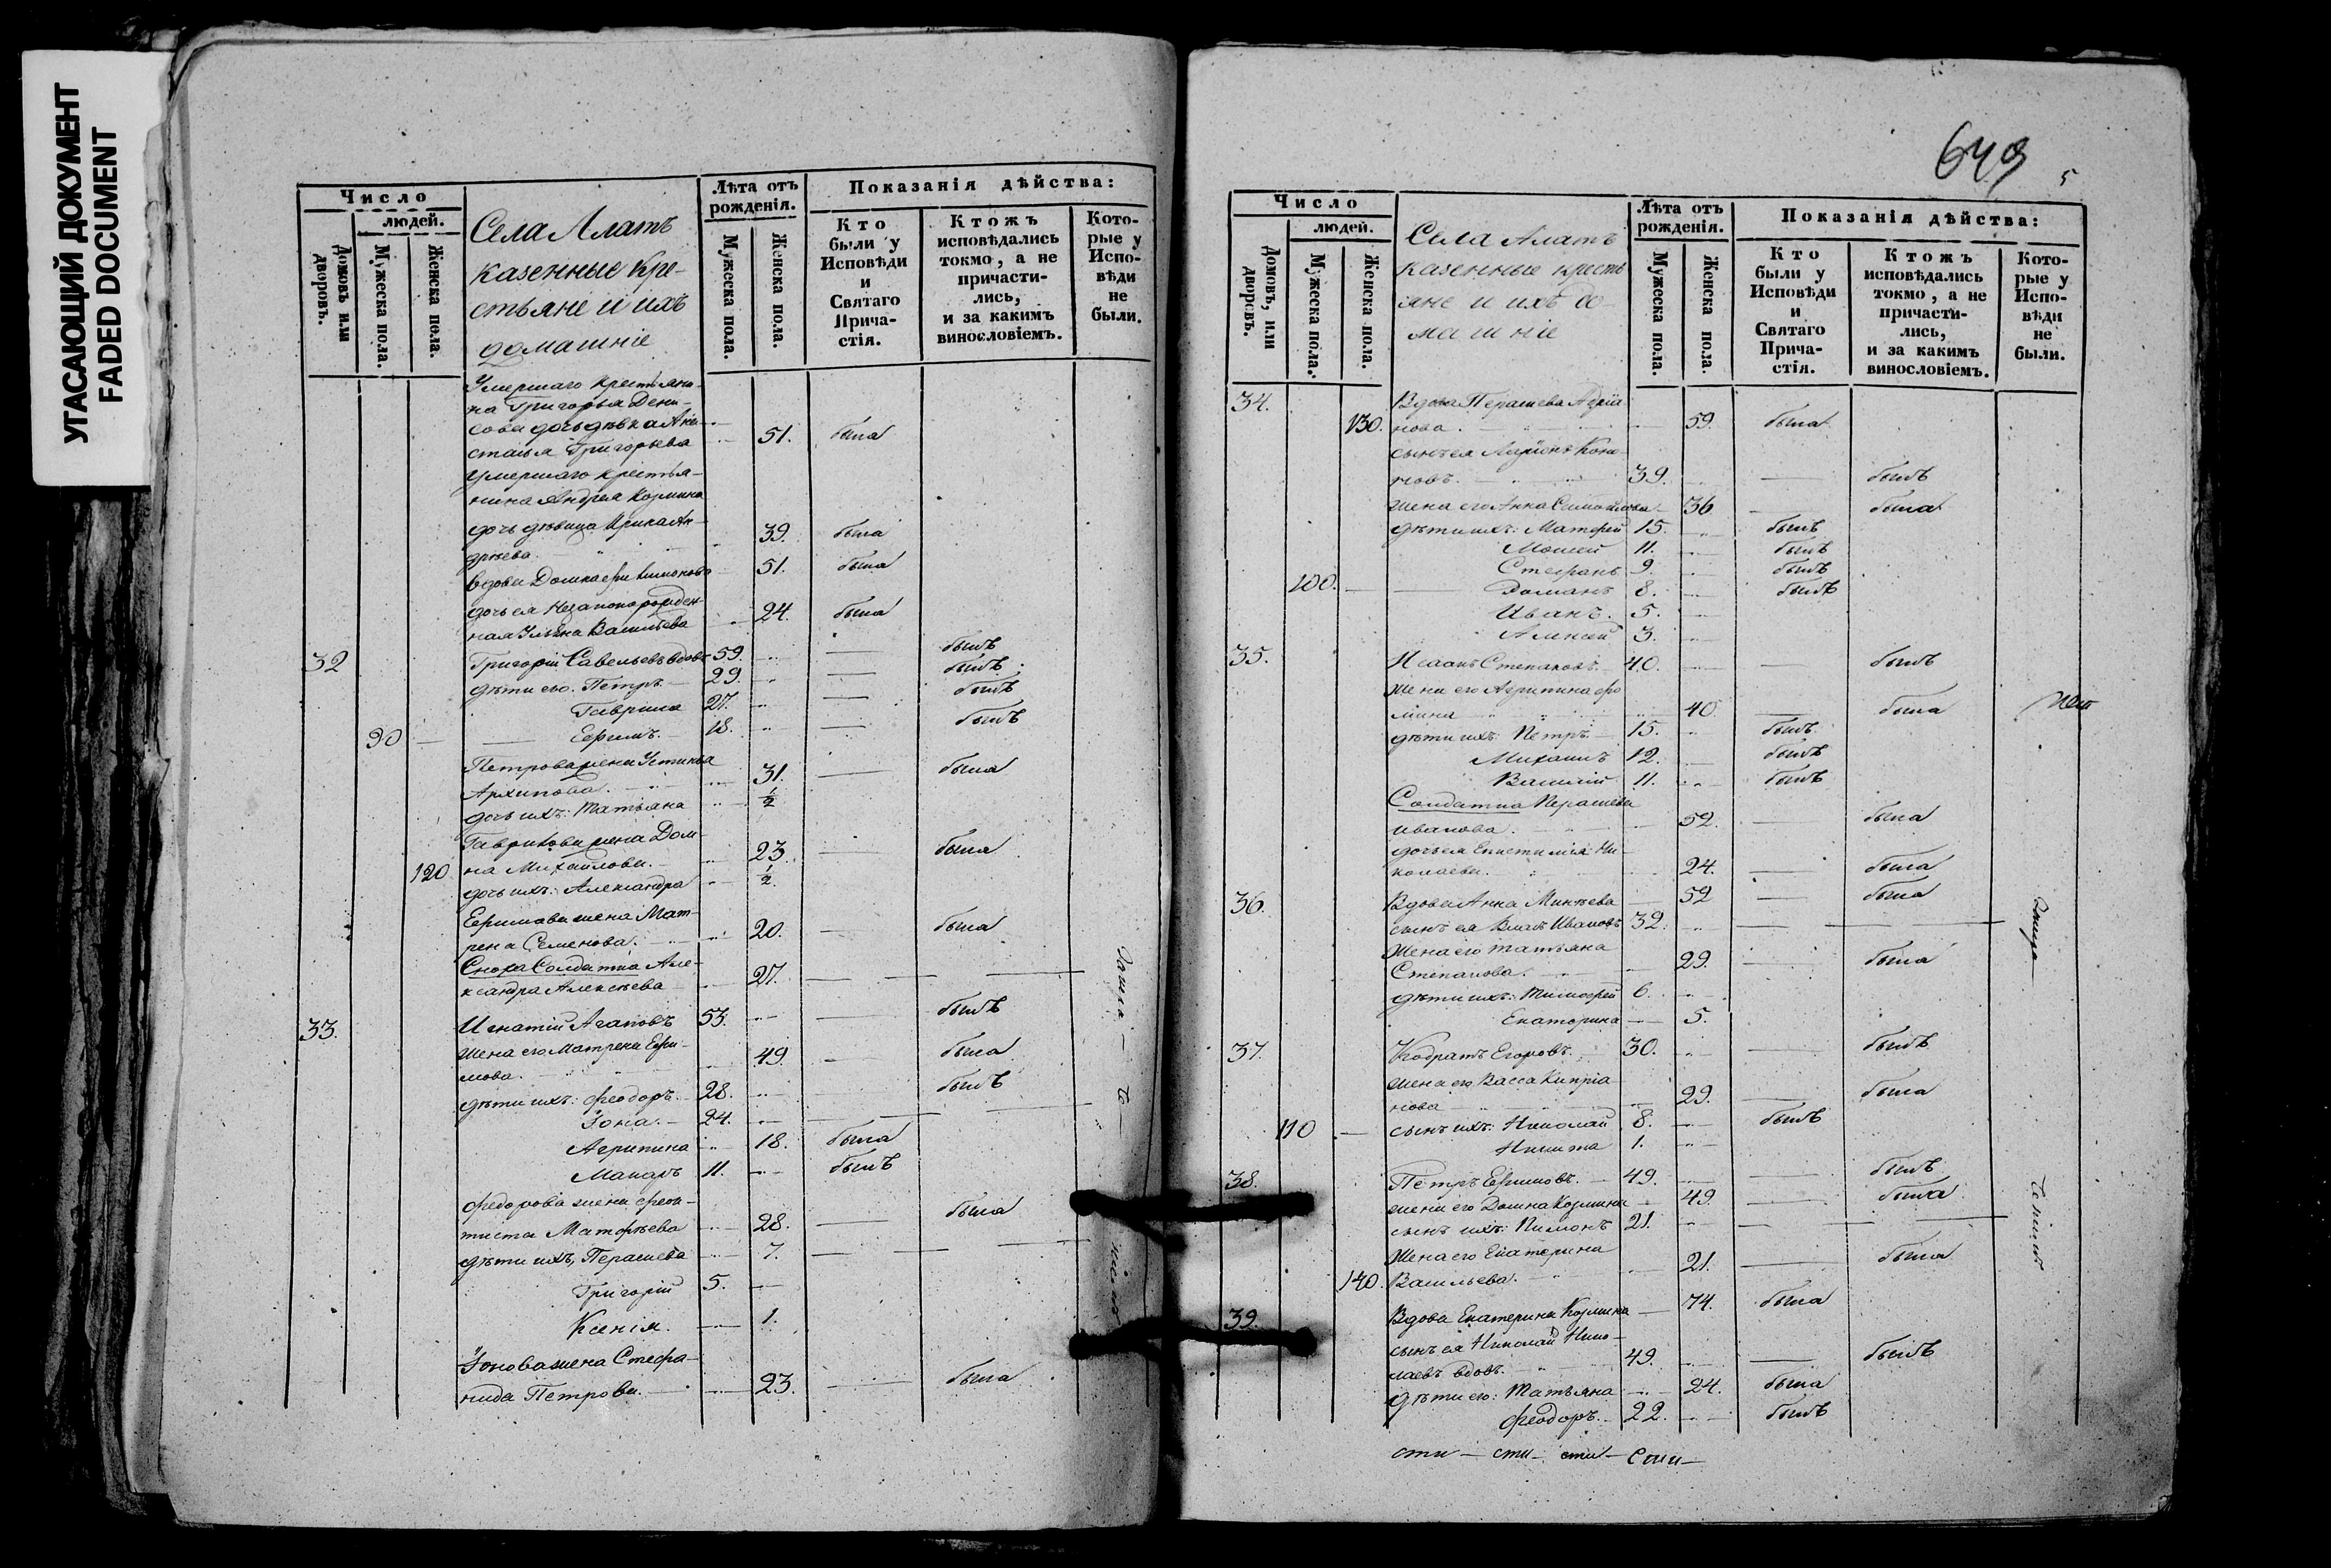 УГАСАЮЩИЙ ДОКУМЕНТ
FADED DOCUMENT
Число
людей.
Домовъ или дворовъ.
Мужеска пола.
Женска пола.
Села Алатъ
казенные кре-
стьяне и ихъ
домашніе
Лѣта отъ
рожденія.
Мужеска пола.
Женска пола.
Показанія дѣйства:
Кто
были у
Исповѣди
и
Святаго
Прича-
стія.
Ктожъ
исповѣдались
токмо, а не
причасти-
лись,
и за какимъ
винословіемъ.
Кото-
рые у
Испо-
вѣди
не
были.
Умершаго крестьяни-
на Григорья Дени-
сова дочь дѣвка Ана-
стасья Григорьева 51. была
Умершаго крестья-
нина Андрея Козмина
дочь дѣвица Ирина Ан-
дрѣева. 39. была
вдова Домна 51. была
дочь ея незаконорожден-
ная Ульяна Васильева 24. была
32 Григорій Савельевъ вдовъ 59. былъ
дѣти его: Петръ 29. былъ
Гаврила 27. былъ
90 Ефимъ. 18. былъ
Петрова жена Устинья
Архипова. 31. была
дочь ихъ: Татьяна ½
Гаврилова жена Дом-
120 на Михайлова. 23. была
дочь ихъ: Александра ½
Ефимова жена Мат-
рена Семенова. 20. была
Сноха Солдатка Але-
ксандра Алексѣева 27.
33. Игнатій Агаповъ 53. былъ
жена его Матрена Ефи-
мова. 49. была
дѣти ихъ: Феодоръ. 28. былъ
Іона. 24.
Агрипина 18. была
Макаръ 11. былъ
Федорова жена Феок-
тиста Матфѣева 28. была
дѣти ихъ, Парасковья 7.
Григорій 5.
Ксенія. 1.
Іонова жена Стефа-
нида Петрова. 23. была
649
5
Число
людей.
Домовъ, или дворовъ.
Мужеска пола.
Женска пола.
Села Алатъ
казенные кресть
яне и ихъ до
машніе
Лѣта отъ
рожденія.
Мужеска пола.
Женска пола.
Показанія дѣйства:
Кто
были у
Исповѣди
и
Святаго
Прича-
стія.
Ктожъ
исповѣдались
токмо, а не
причасти-
лись,
и за какимъ
винословіемъ.
Кото-
рые у
Испо-
вѣди
не
были.
34. Вдова Адріа
130. нова. 59. была
сынъ ея Ларіонъ Коно
новъ. 39. былъ
жена его Анна Самойлова 36 была
дѣти ихъ: Матфей 15. былъ
Моисей 11. былъ
Стефанъ 9. былъ
100. Романъ 8. былъ
Иванъ. 5.
Алексей 3.
35. Исаакъ Степановъ. 40. былъ
жена его Агрипина Фо
мина 40 была
дѣти ихъ: Петръ 15. былъ
Михаилъ 12. былъ
Василій 11. былъ
Солдатка
Иванова. 52. была
дочь ея Епистимія Ни-
колаева. 24. была
36. Вдова Анна Минѣева 52 была
сынъ ея Власъ Ивановъ 32.
жена его Татьяна
Степанова. 29. была
дѣти ихъ: Тимофей 6.
Екатерина 5.
37. Кодратъ Егоровъ. 30. былъ
жена его Васса Кипріа-
нова 29. была
110 сынъ ихъ: Николай 8. былъ
Никита 1.
38. Петръ Ефимовъ. 49. былъ
жена его Домна Козмина 49. была
сынъ ихъ: Пимонъ 21.
жена его Екатерина
140. Васильева. 21. была
39. Вдова Екатерина Козмина 74. была
сынъ ея Николай Нико-
лаевъ вдовъ. 49. былъ
дѣти его: Татьяна 24. была
Феодоръ. 22. былъ
сти — сти — сти — сти —